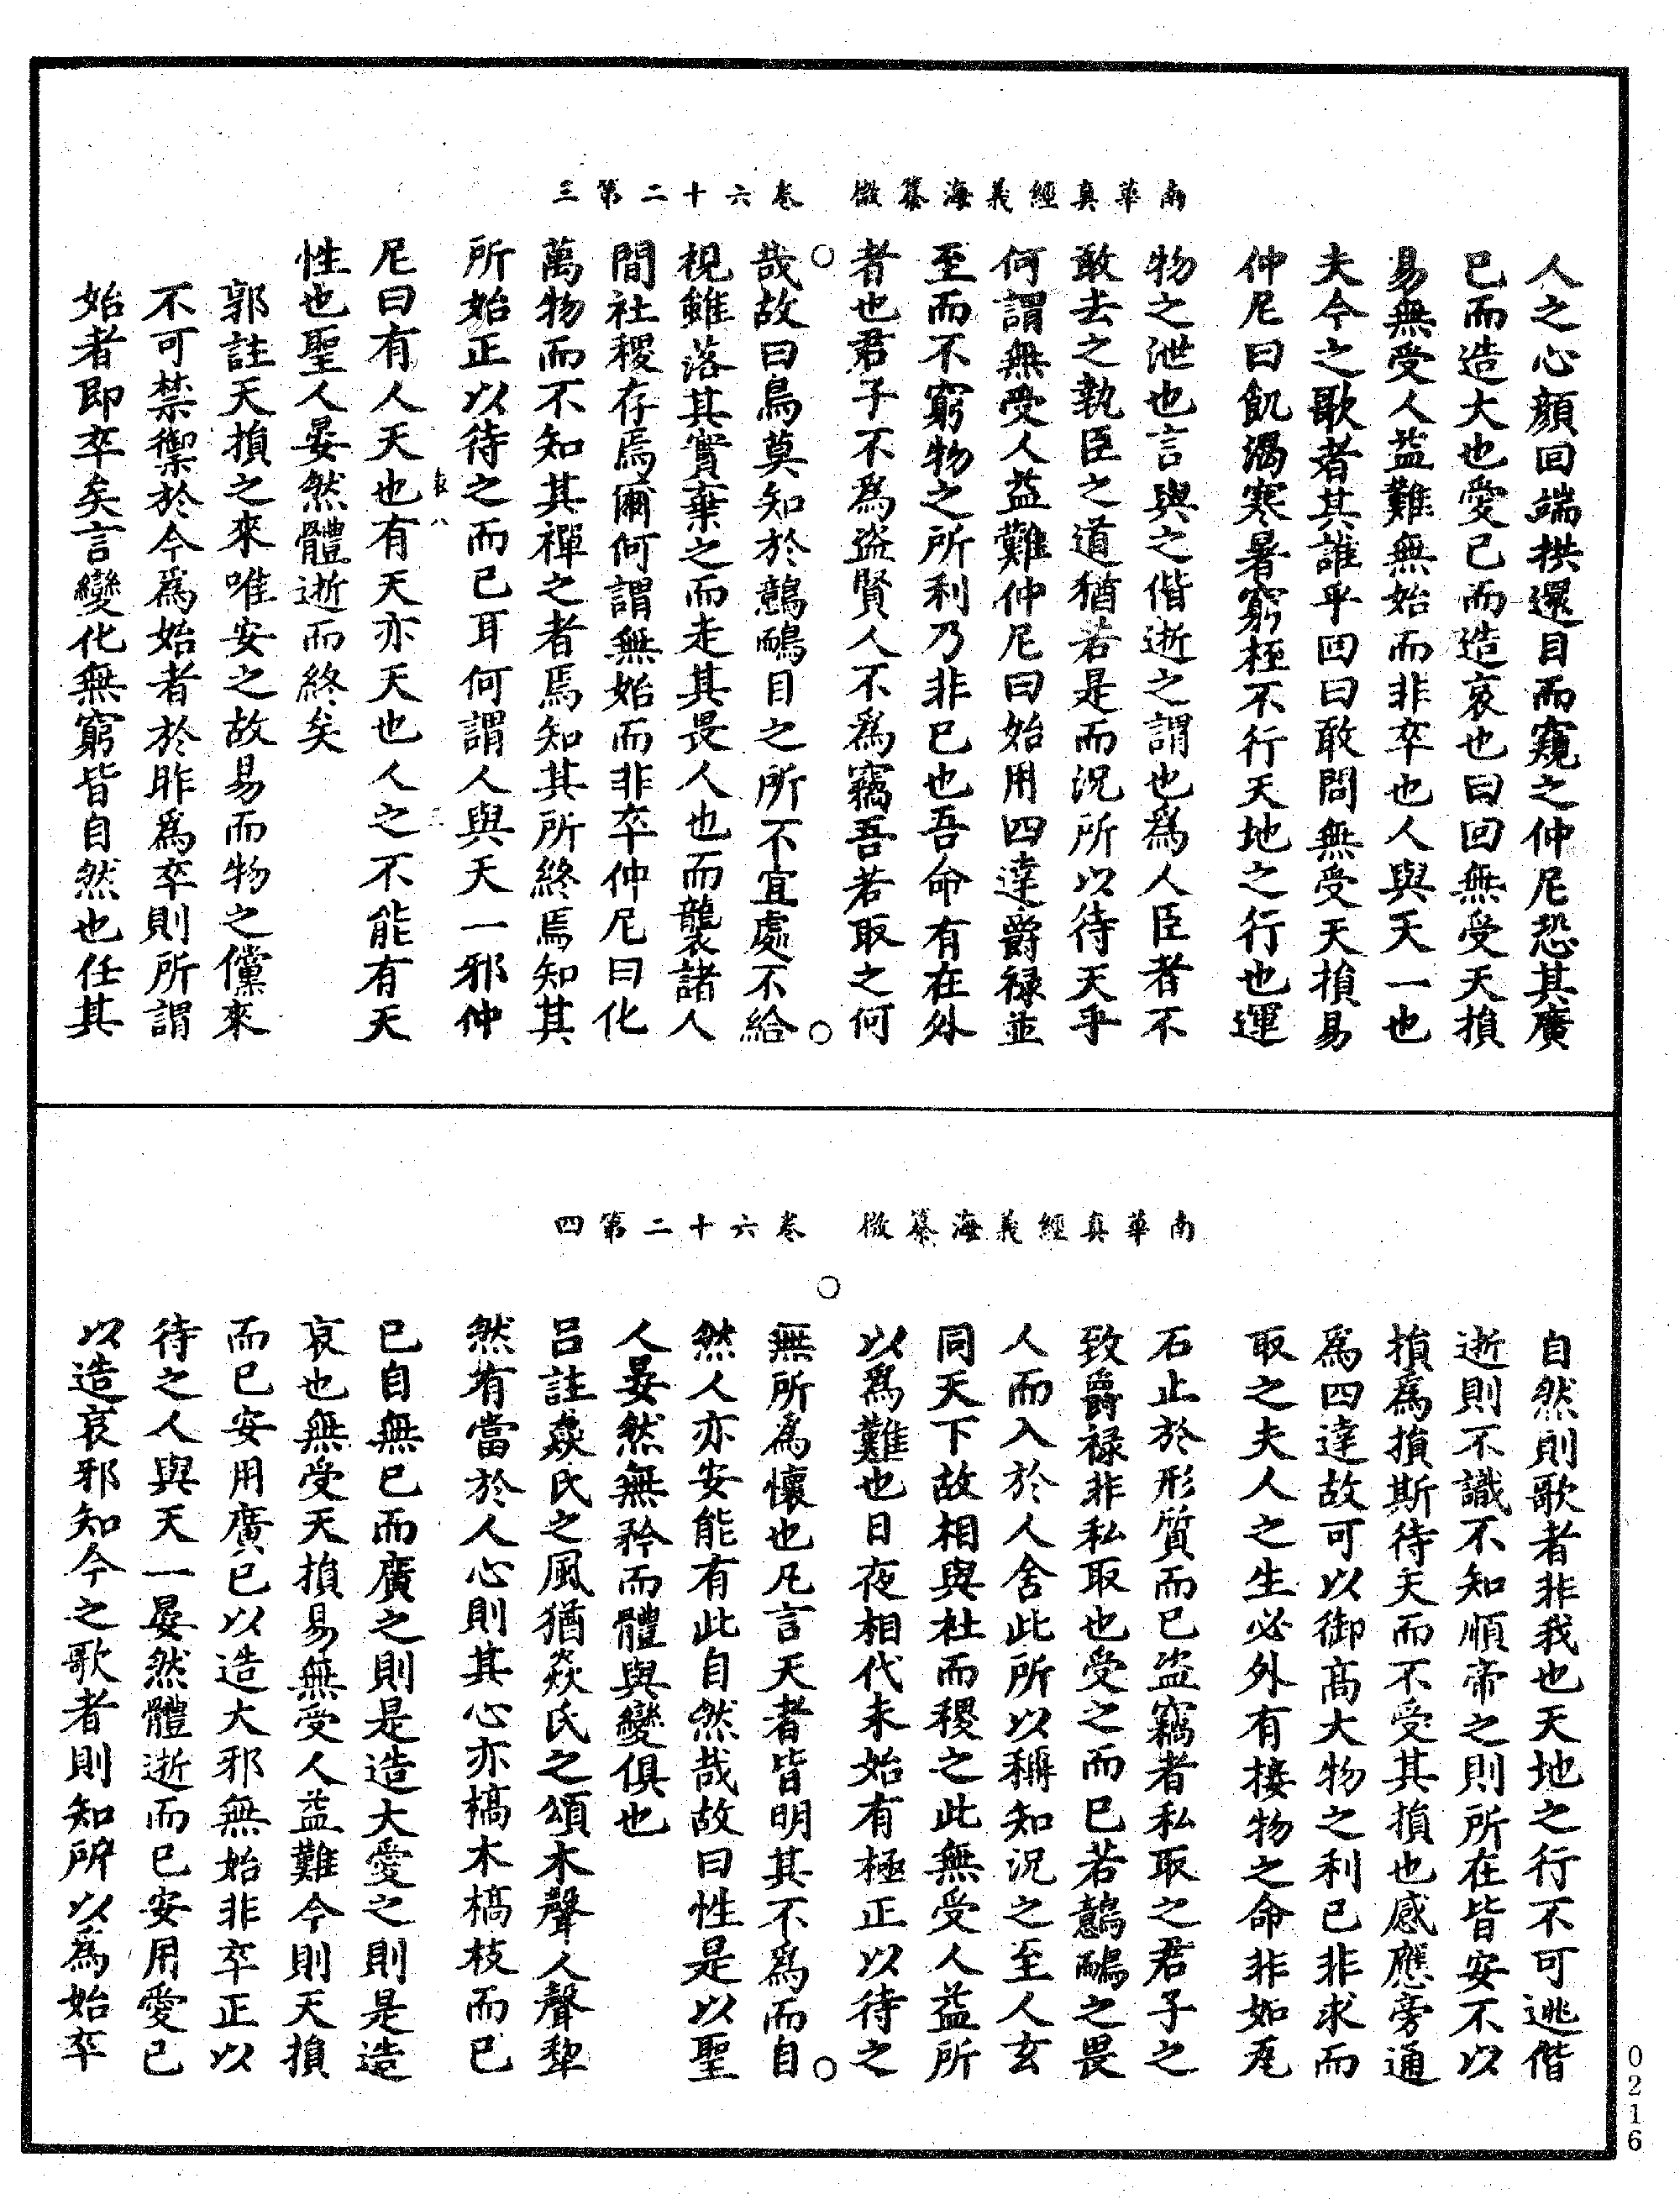 南華真經義海纂微　卷六十二第三
人之心顔回端拱還目而窺之仲尼恐其廣
已而造大也愛已而造哀也曰回無受天損
易無受人益難無始而非卒也人與天一也
夫今之歌者其誰乎回曰敢問無受天損易
仲尼曰飢渴寒暑窮桎不行天地之行也運
物之泄也言與之偕逝之謂也爲人臣者不
敢去之執臣之道猶若是而況所以待天乎
何謂無受人益難仲尼曰始用四達爵禄並
至而不窮物之所利乃非已也吾命有在外
者也君子不爲盜賢人不爲竊吾若取之何
哉故曰鳥莫知於鷾鴯目之所不宜處不給
視雖落其實棄之而走其畏人也而襲諸人
間社稷存焉爾何謂無始而非卒仲尼曰化
萬物而不知其禪之者焉知其所終焉知其
所始正以待之而已耳何謂人與天一邪仲
尼曰有人天也有天亦天也人之不能有天
性也聖人晏然體逝而終矣
郭註天損之來唯安之故易而物之儻來
不可禁禦於今爲始者於昨爲卒則所謂
始者即卒矣言變化無窮皆自然也任其
南華真經義海纂微　卷六十二第四
自然則歌者非我也天地之行不可逃偕
逝則不識不知順帝之則所在皆安不以
損爲損斯待天而不受其損也感應旁通
爲四達故可以御高大物之利已非求而
取之夫人之生必外有接物之命非如瓦
石止於形質而已盜竊者私取之君子之
致爵禄非私取也受之而已若鷾鴯之畏
人而入於人舍此所以稱知況之至人玄
同天下故相與社而稷之此無受人益所
以爲難也日夜相代未始有極正以待之
無所爲懷也凡言天者皆明其不爲而自
然人亦安能有此自然哉故曰性是以聖
人晏然無矜而體與變俱也
呂註猋氏之風猶焱氏之頌木聲人聲犂
然有當於人心則其心亦槁木槁枝而已
已自無已而廣之則是造大愛之則是造
哀也無受天損易無受人益難今則天損
而已安用廣已以造大邪無始非卒正以
待之人與天一晏然體逝而已安用愛已
以造哀邪知今之歌者則知所以爲始卒
0216